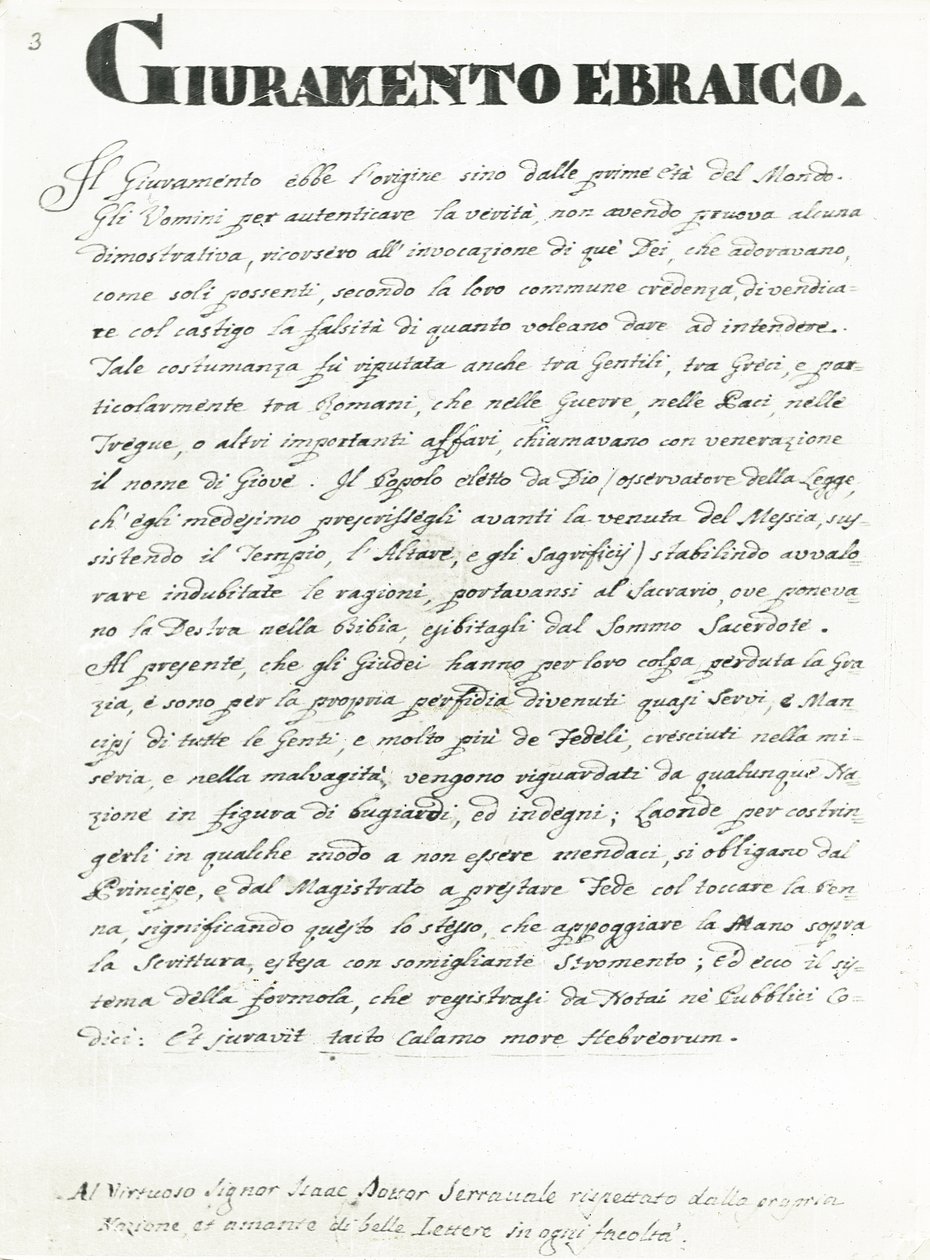 3
GIURAMENTO EBRAICO.
Il Giuramento ebbe l'origine sino dalle prime età del Mondo.
Gli Vomini per autenticare la verità, non avendo pruova alcuna
dimostrativa, ricorsero all'invocazione di què Dei, che adoravano,
come soli possenti, secondo la loro commune credenza, di vendica=
re col castigo la falsità di quanto voleano dare ad intendere.
Tale costumanza fù riputata anche tra Gentili, tra Greci, e par=
ticolarmente tra Romani, che nelle Guerre, nelle Paci, nelle
Tregue, o altri importanti affari, chiamavano con venerazione
il nome di Giove. Il Popolo eletto da Dio (osservatore della Legge,
ch'egli medesimo prescrissegli avanti la venuta del Messia, sus=
sistendo il Tempio, l'Altare, e gli Sagrificij) stabilindo avvalo=
rare indubitate le ragioni, portavansi al Sacrario, ove poneva=
no la Destra nella Bibia, esibitagli dal Sommo Sacerdote.
Al presente, che gli Giudei hanno per loro colpa perduta la Gra=
zia, e sono per la propria perfidia divenuti quasi Servi, e Man=
cipj di tutte le Genti, e molto più de Fedeli, cresciuti nella mi=
seria, e nella malvagità, vengono riguardati da qualunque Na=
zione in figura di bugiardi, ed indegni; Laonde per costrin=
gerli in qualche modo a non essere mendaci, si obligano dal
Principe, e dal Magistrato a prestare Fede col toccare la Pen=
na, significando questo lo stesso, che appoggiare la Mano sopra
la Scrittura, estesa con somigliante Stromento; Ed ecco il sis=
tema della formola, che registrasi da Notai nè Pubblici Co=
dici: Et juravit tacto Calamo more Hebreorum.
Al Virtuoso Signor Isaac Dottor Serravale rispettato dalla propria
Nazione, et amante di belle Lettere in ogni facoltà.